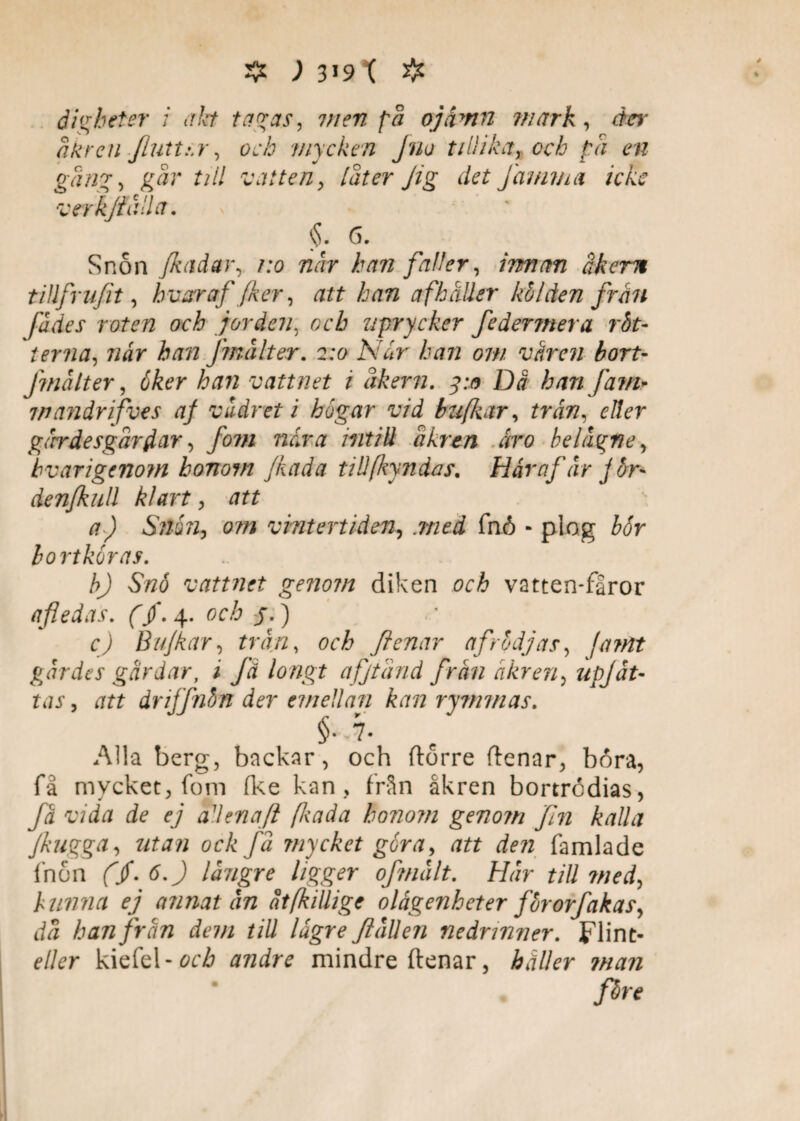 ☼ ) 319 ( ☼
digheter i akt tagas, men på ojämn mark, der
åkren sluttar, och mycken snö tillika, och på en
gång, går till vatten, låter sig det samma icke
verkställa.
§. 6.
Snön skadar, 1:o når han faller, innan åkern
tillfrusit, hvaraf sker, att han afhåller kölden från
sådes roten och jorden, och uprycker sedermera röt-
terna, når han smålter. 2:o Når han om våren bort-
smålter, öker han vattnet i åkern. 3:o Då han sam-
mandrifves af vådret i högar vid buskar, trån, eller
gårdesgårdar, som nåra intill åkren åro belågne,
hvarigenom honom skada tillskyndas. Håraf år för-
denskull klart, att
a) Snön, om vintertiden, med snö-plog bör
bortköras.
b) Snö vattnet genom diken och vatten-fåror
afledas. (§. 4. och 5.)
c) Buskar, trån, och stenar afrödjas, samt
gårdes gårdar, i så longt afstånd från åkren, upsåt-
tas, att drifsnön der emellan kan rymmas.
§. 7.
Alla berg, backar, och större stenar, böra,
så mycket, som ske kan, från åkren bortrödias,
så vida de ej allenast skada honom genom sin kalla
skugga, utan ock så mycket göra, att den samlade
snön (§. 6.) långre ligger osmålt. Hår till med,
kunna ej annat ån åtskillige olågenheter förorsakas,
då han från dem till lågre stållen nedrinner. Flint-
eller kiesel- och andre mindre stenar, håller man
före